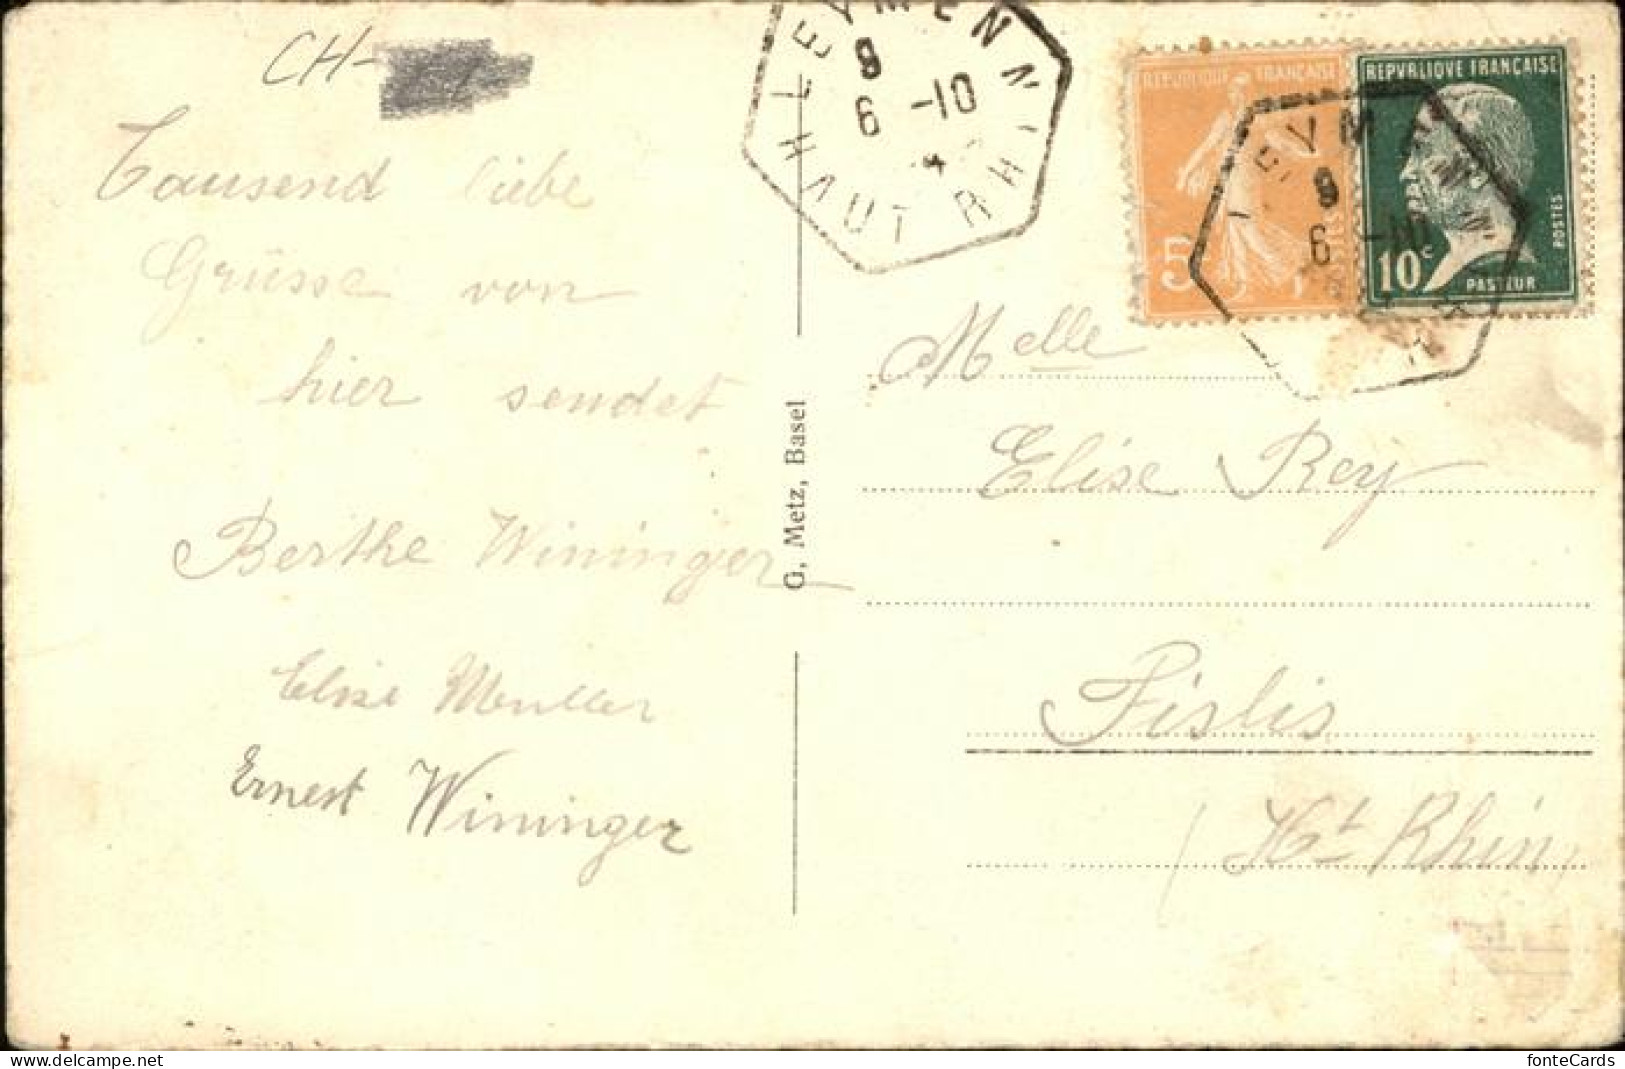 CH-
Tausend liebe
Grüsse von
hier sendet
Berthe Wininger
Elise Muller
Ernest Wininger
G. Metz, Basel
LEYMEN
8
6 -10
HAUT RHIN
REPUBLIQUE FRANÇAISE
5
REPVBLIQVE FRANÇAISE
POSTES
10c
PASTEUR
LEYMEN
8
6 -10
Melle
Elise Rey
Fislis
(Ht Rhin)
fonteCards